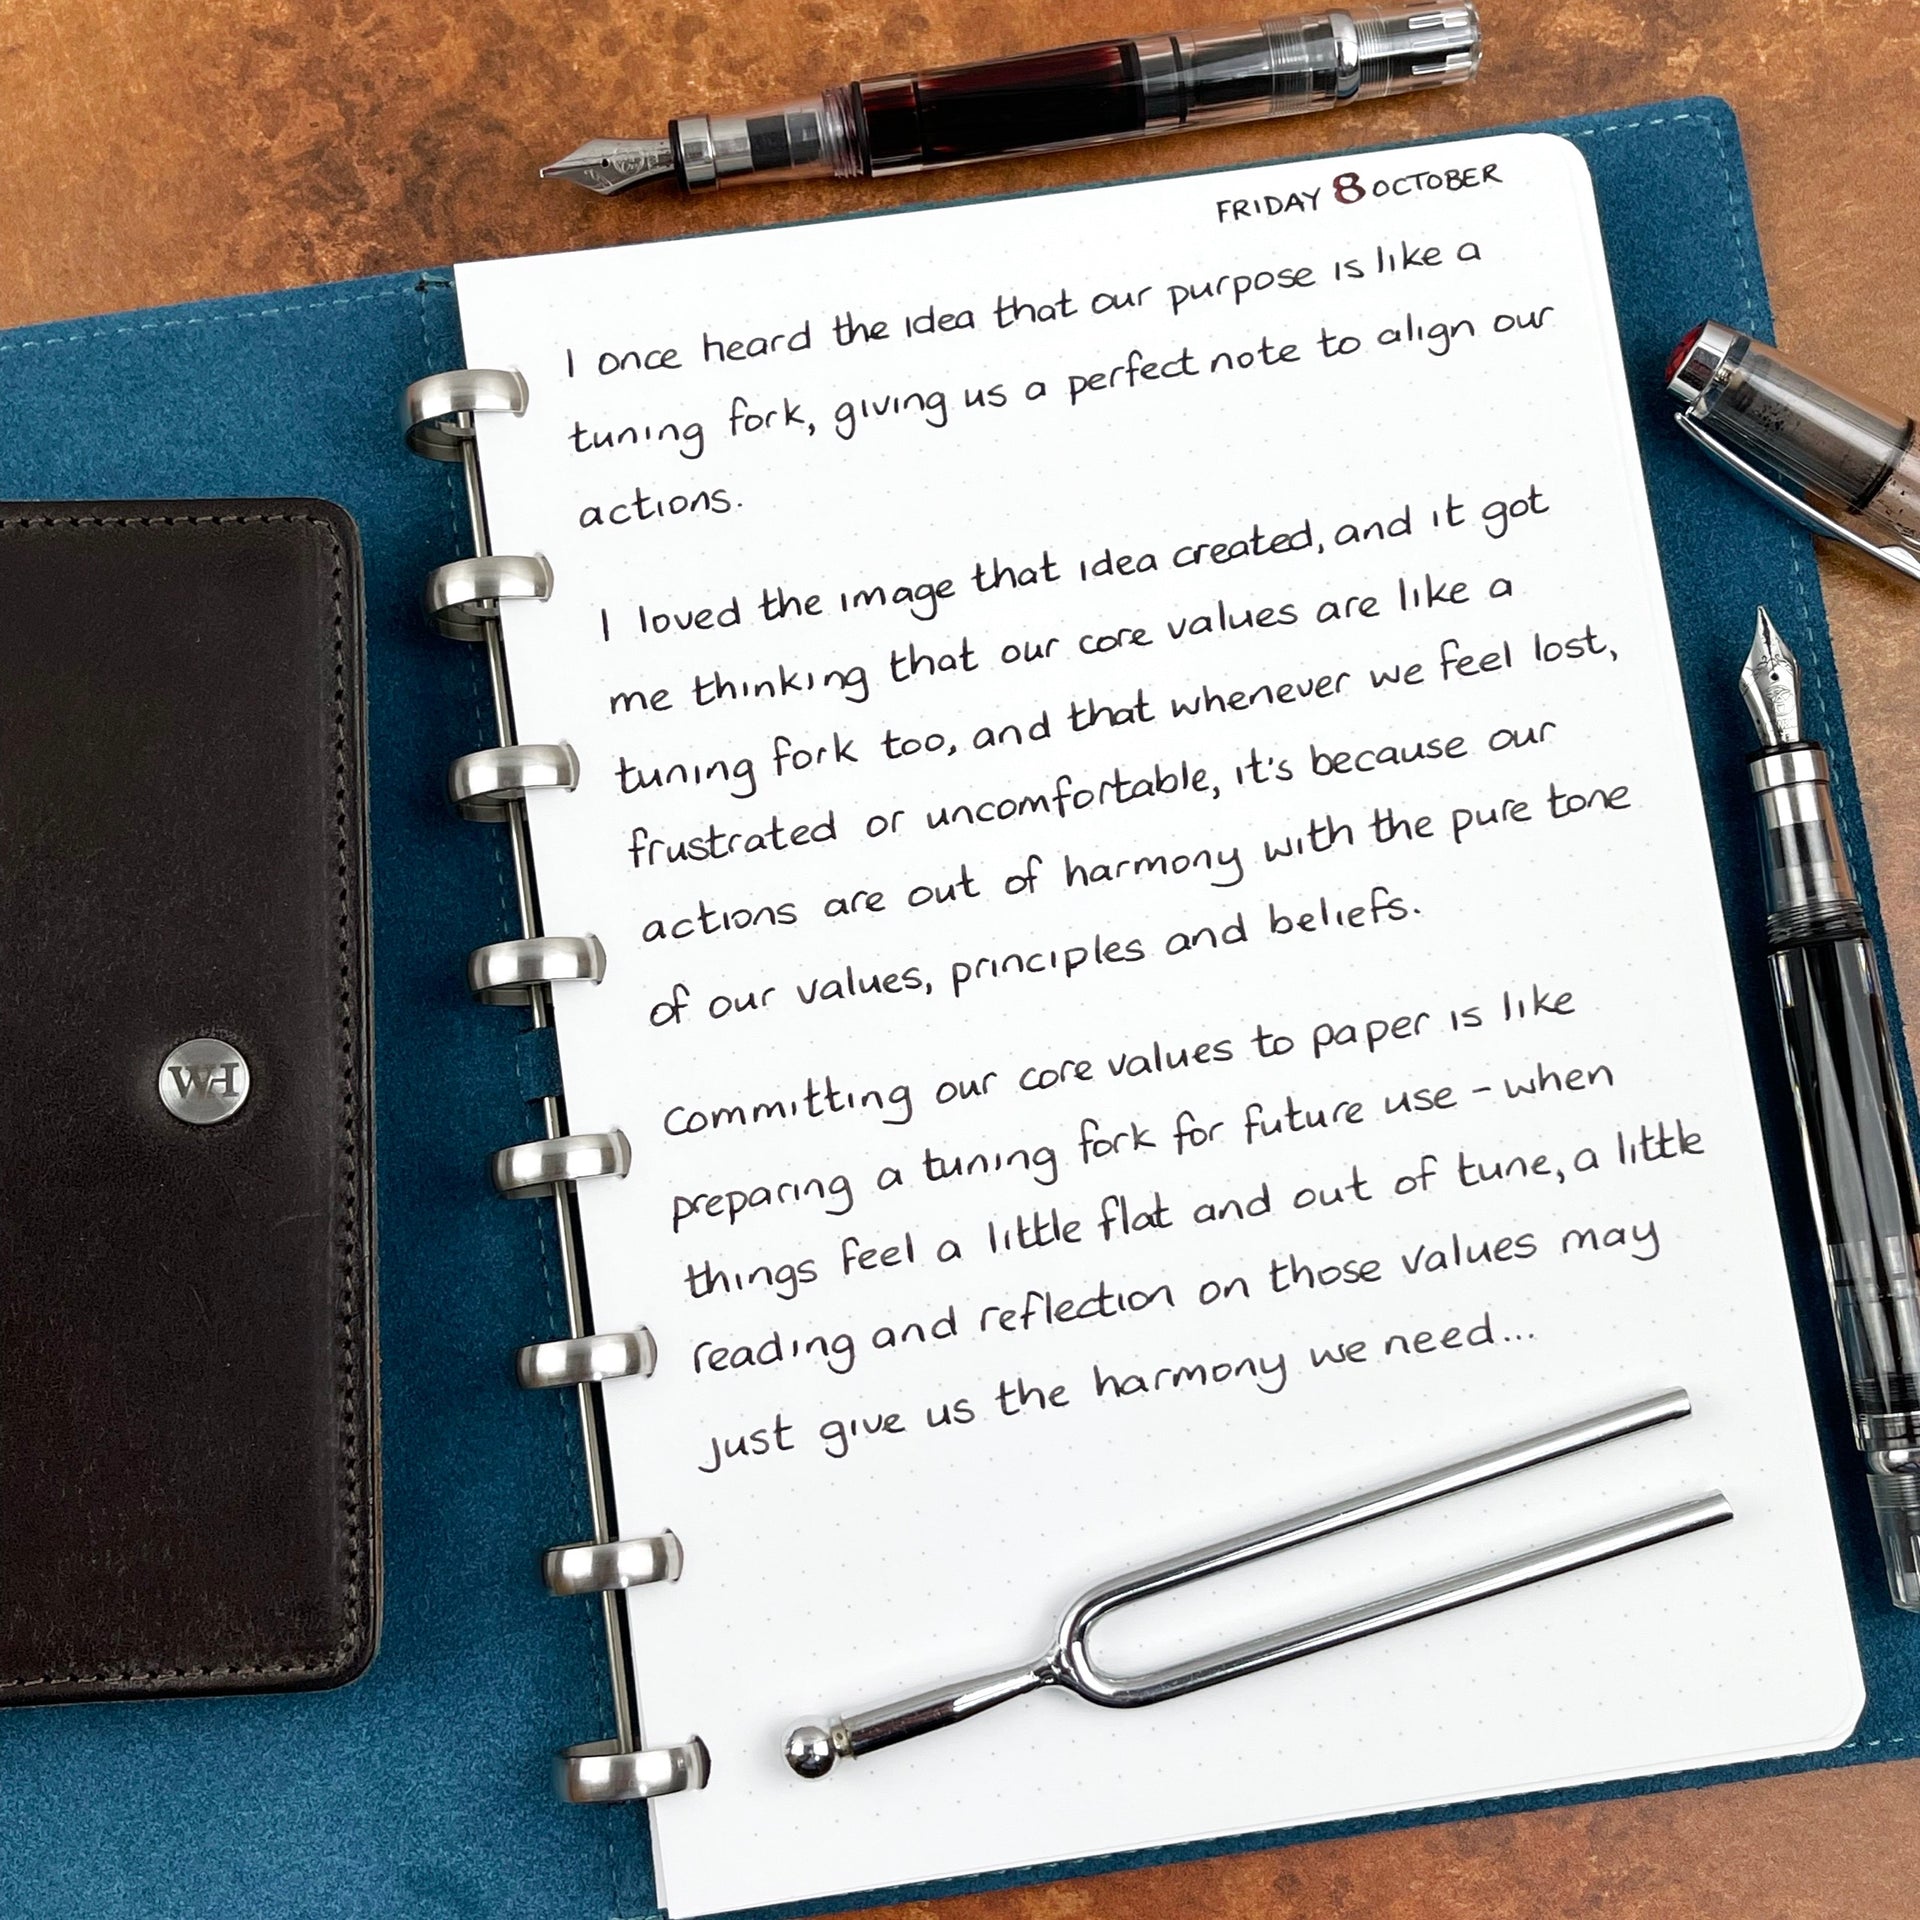 FRIDAY 8 OCTOBER
I once heard the idea that our purpose is like a
tuning fork, giving us a perfect note to align our
actions.
I loved the image that idea created, and it got
me thinking that our core values are like a
tuning fork too, and that whenever we feel lost,
frustrated or uncomfortable, it's because our
actions are out of harmony with the pure tone
of our values, principles and beliefs.
Committing our core values to paper is like
preparing a tuning fork for future use - when
things feel a little flat and out of tune, a little
reading and reflection on those values may
just give us the harmony we need...
WH